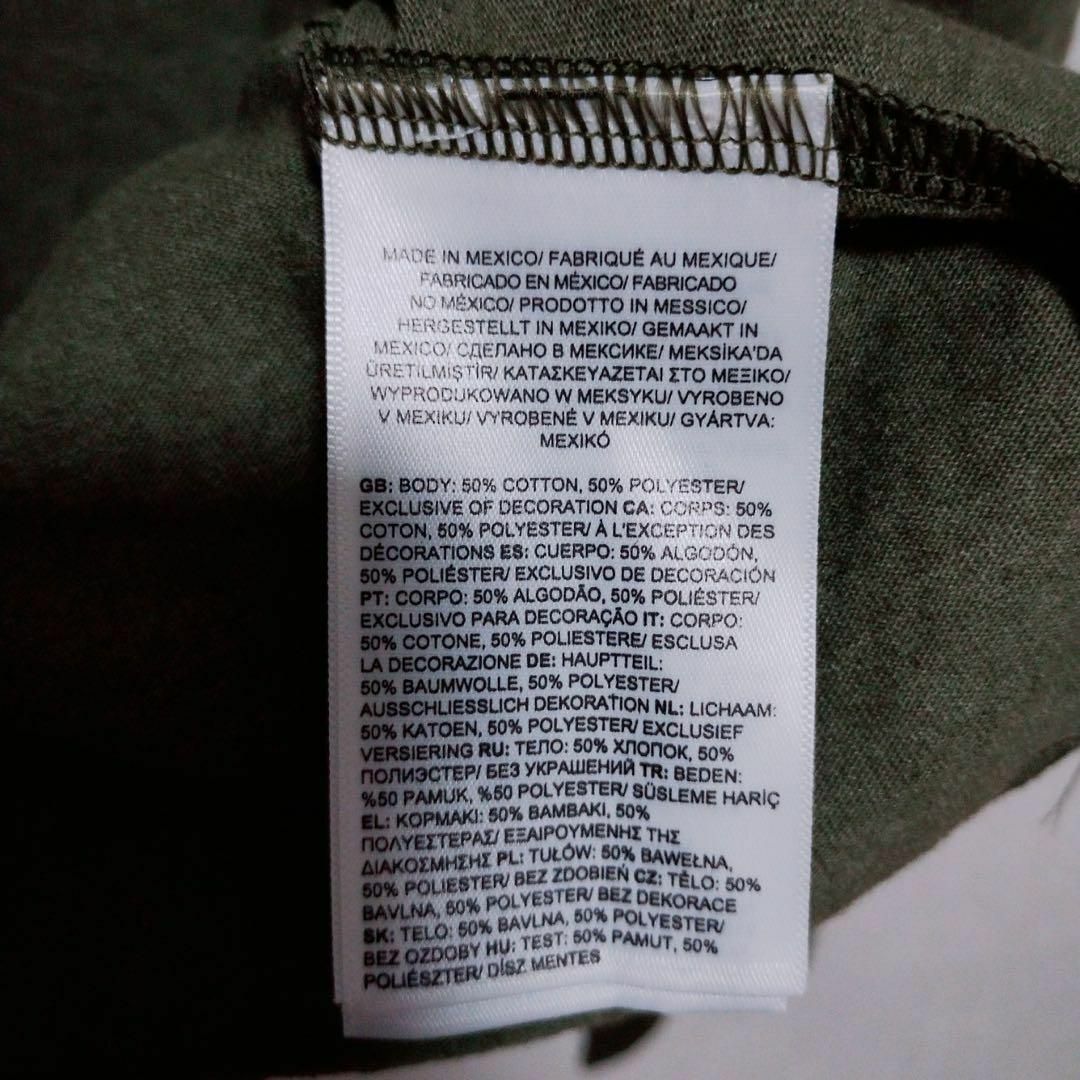 MADE IN MEXICO/ FABRIQUÉ AU MEXIQUE/
FABRICADO EN MÉXICO/ FABRICADO
NO MÉXICO/ PRODOTTO IN MESSICO/
HERGESTELLT IN MEXIKO/ GEMAAKT IN
MEXICO/ СДЕЛАНО В МЕКСИКЕ/ MEKSİKA'DA
ÜRETILMIŞTİR/ ΚΑΤΑΣΚΕΥΑΖΕΤΑΙ ΣΤΟ ΜΕΞΙΚΟ/
WYPRODUKOWANO W MEKSYKU/ VYROBENO
V MEXIKU/ VYROBENÉ V MEXIKU/ GYÁRTVA:
MEXIKÓ
GB: BODY: 50% COTTON, 50% POLYESTER/
EXCLUSIVE OF DECORATION CA: CORPS: 50%
COTON, 50% POLYESTER/ À L'EXCEPTION DES
DÉCORATIONS ES: CUERPO: 50% ALGODÓN,
50% POLIÉSTER/ EXCLUSIVO DE DECORACIÓN
PT: CORPO: 50% ALGODÃO, 50% POLIÉSTER/
EXCLUSIVO PARA DECORAÇÃO IT: CORPO:
50% COTONE, 50% POLIESTERE/ ESCLUSA
LA DECORAZIONE DE: HAUPTTEIL:
50% BAUMWOLLE, 50% POLYESTER/
AUSSCHLIESSLICH DEKORATION NL: LICHAAM:
50% KATOEN, 50% POLYESTER/ EXCLUSIEF
VERSIERING RU: ТЕЛО: 50% ХЛОПОК, 50%
ПОЛИЭСТЕР/ БЕЗ УКРАШЕНИЙ TR: BEDEN:
%50 PAMUK, %50 POLYESTER/ SÜSLEME HARİÇ
EL: ΚΟΡΜΑΚΙ: 50% ΒΑΜΒΑΚΙ, 50%
ΠΟΛΥΕΣΤΕΡΑΣ/ ΕΞΑΙΡΟΥΜΕΝΗΣ ΤΗΣ
ΔΙΑΚΟΣΜΗΣΗΣ PL: TUŁÓW: 50% BAWEŁNA,
50% POLIESTER/ BEZ ZDOBIEŃ CZ: TĚLO: 50%
BAVLNA, 50% POLYESTER/ BEZ DEKORACE
SK: TELO: 50% BAVLNA, 50% POLYESTER/
BEZ OZDOBY HU: TEST: 50% PAMUT, 50%
POLIÉSZTER/ DÍSZ MENTES